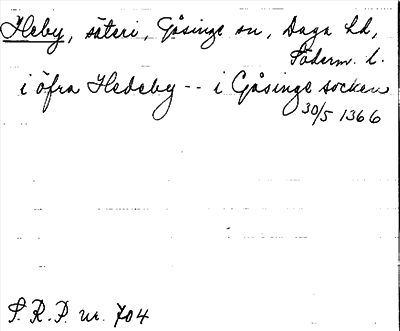 Heby, säteri, Gåsinge sn, Daga hd,
Söderm. l.
i öfra Hedeby -- i Gåsinge socken
30/5 1366
S.R.P. nr. 704